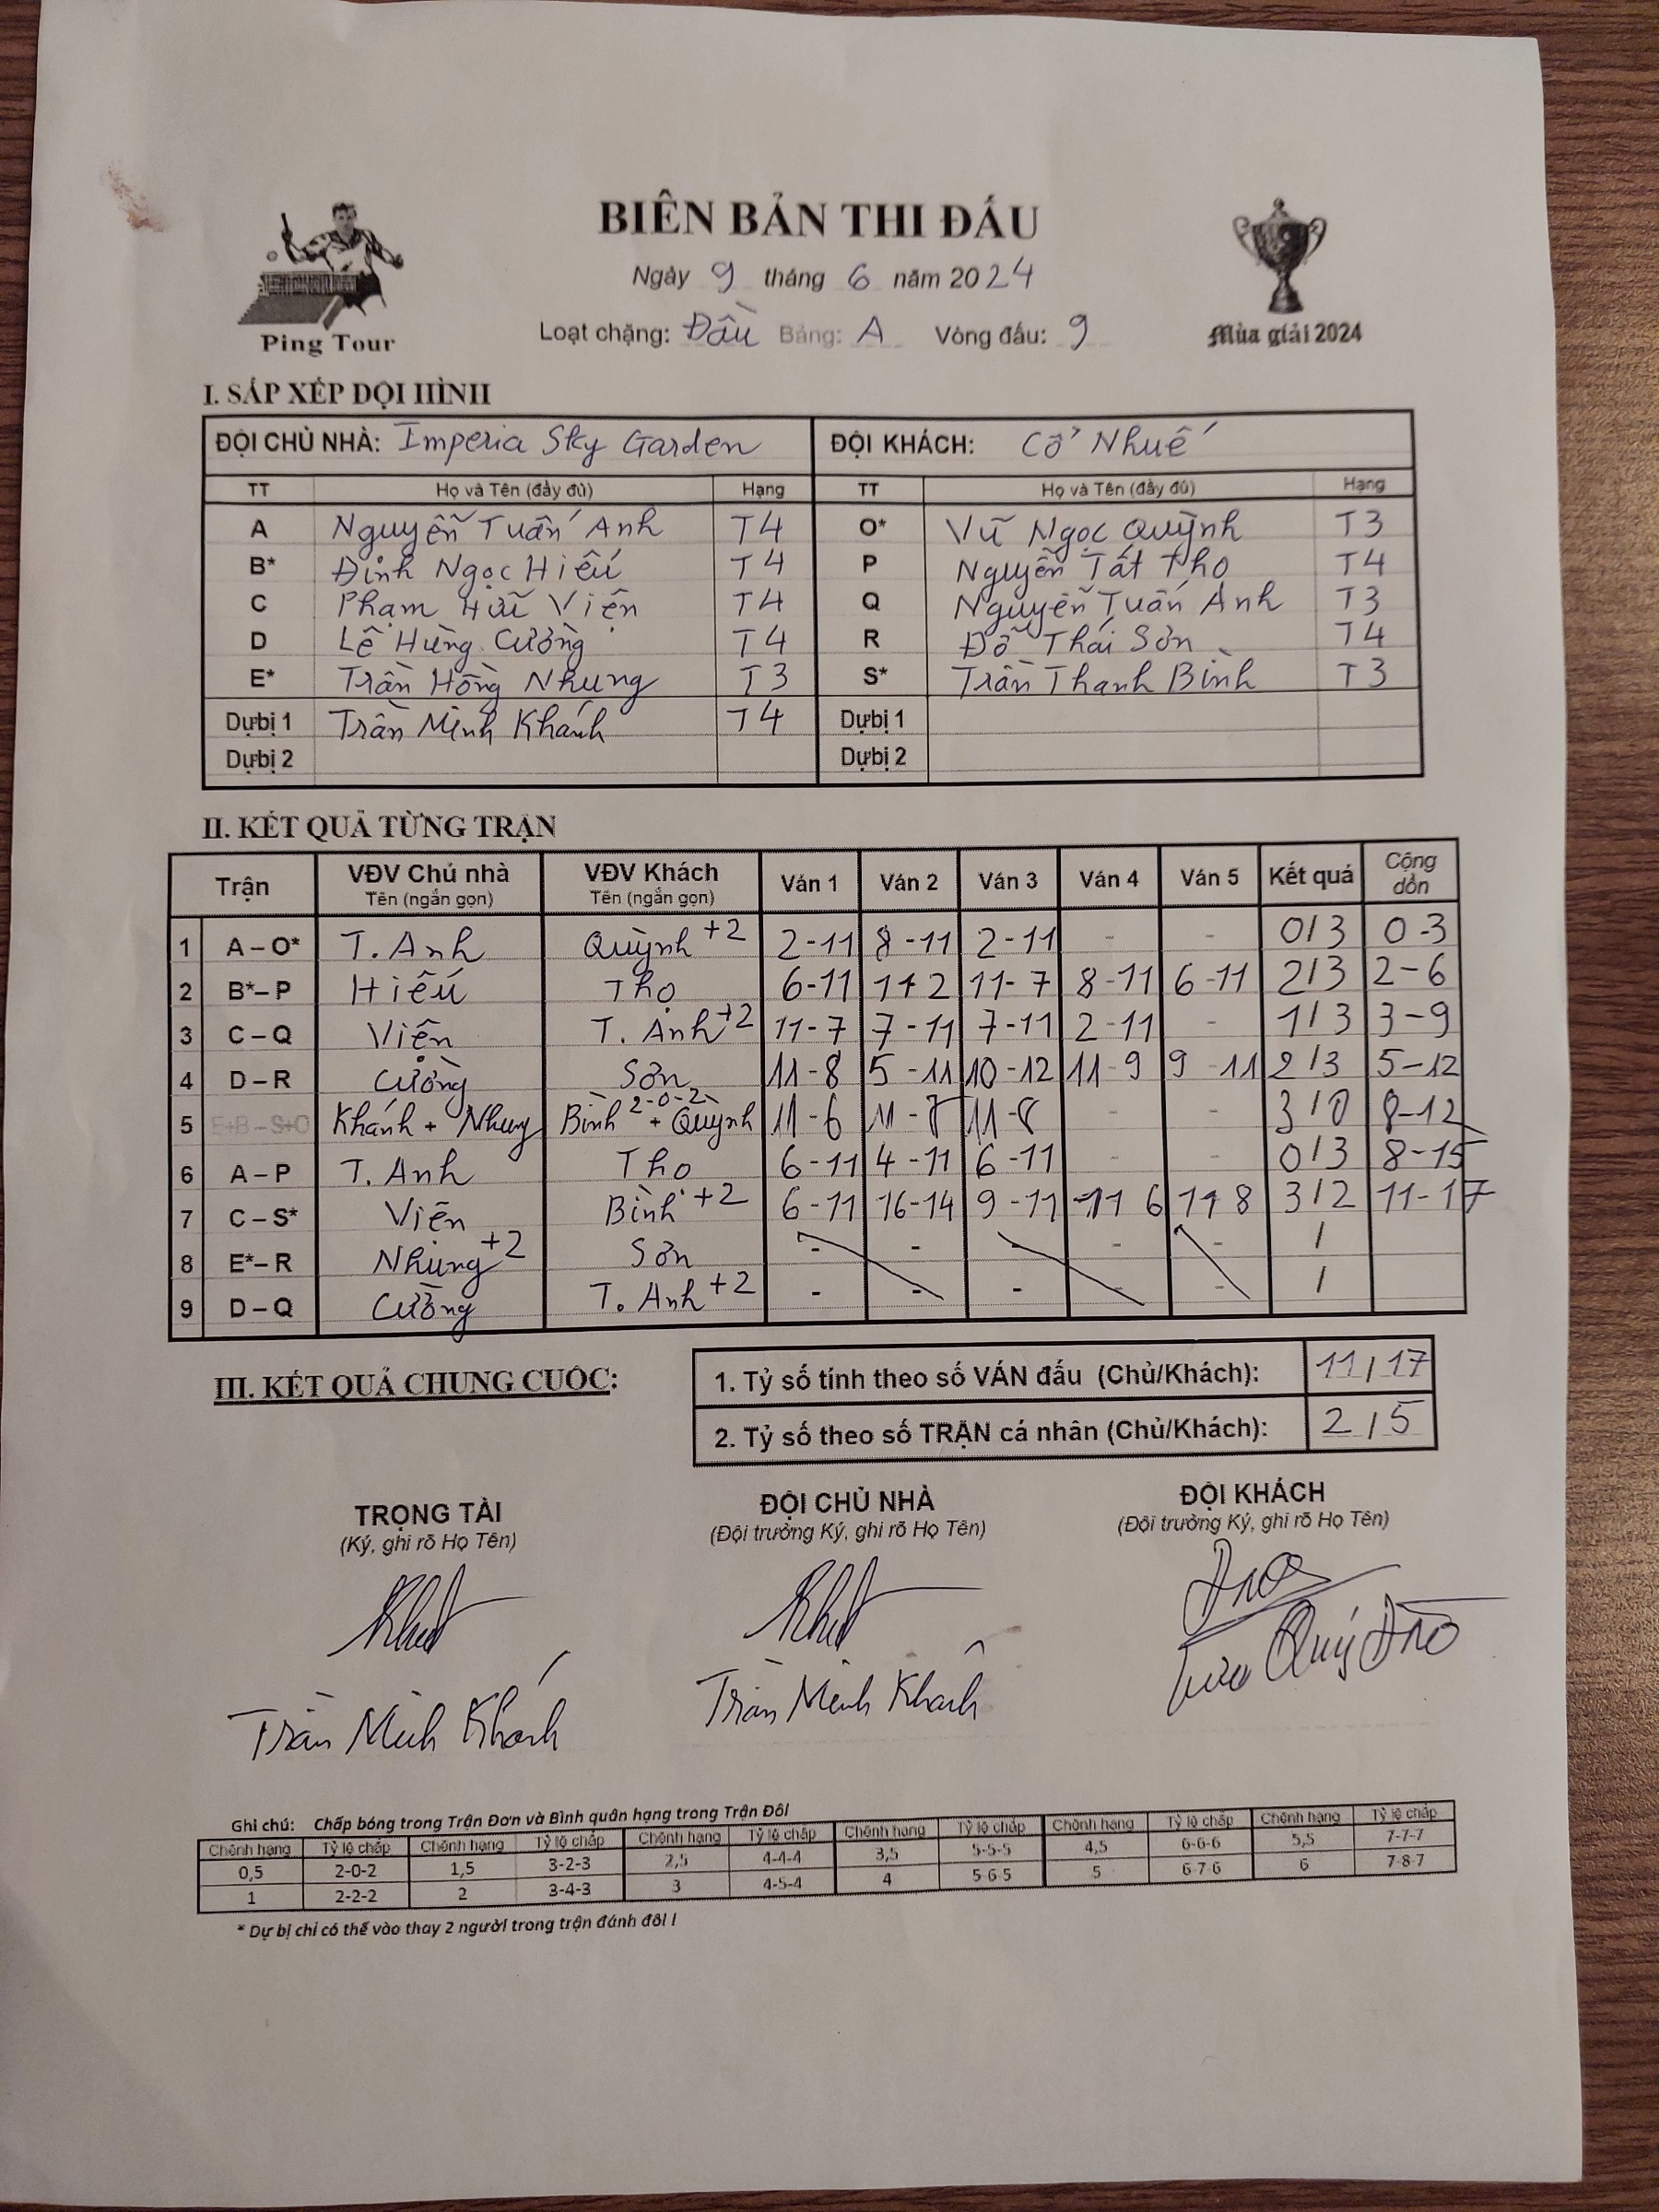 BIÊN BẢN THI ĐẤU
Ngày 9 tháng 6 năm 2024
Ping Tour
Loạt chặng: Đầu Bảng: A Vòng đấu: 9
Mùa giải 2024
I. SẮP XẾP ĐỘI HÌNH
ĐỘI CHỦ NHÀ: Imperia Sky Garden ĐỘI KHÁCH: Cổ Nhuế
TT Họ và Tên (đầy đủ) Hạng TT Họ và Tên (đầy đủ) Hạng
A Nguyễn Tuấn Anh T4 O* Vũ Ngọc Quỳnh T3
B* Đinh Ngọc Hiếu T4 P Nguyễn Tất Thọ T4
C Phạm Hữu Viện T4 Q Nguyễn Tuấn Anh T3
D Lê Hùng Cường T4 R Đỗ Thái Sơn T4
E* Trần Hồng Nhung T3 S* Trần Thanh Bình T3
Dự bị 1 Trần Minh Khánh T4 Dự bị 1
Dự bị 2 Dự bị 2
II. KẾT QUẢ TỪNG TRẬN
Trận VĐV Chủ nhà VĐV Khách Ván 1 Ván 2 Ván 3 Ván 4 Ván 5 Kết quả Cộng dồn
Tên (ngắn gọn) Tên (ngắn gọn)
1 A – O* T. Anh Quỳnh +2 2-11 8-11 2-11 - - 0/3 0-3
2 B* – P Hiếu Thọ 6-11 11 2 11-7 8-11 6-11 2/3 2-6
3 C – Q Viện T. Anh +2 11-7 7-11 7-11 2-11 - 1/3 3-9
4 D – R Cường Sơn 11-8 5-11 10-12 11-9 9-11 2/3 5-12
5 E+B – S+O Khánh + Nhung Bình 2-0-2 + Quỳnh 11-6 11-8 11-8 - - 3/0 8-12
6 A – P T. Anh Thọ 6-11 4-11 6-11 - - 0/3 8-15
7 C – S* Viện Bình +2 6-11 16-14 9-11 11 6 11 8 3/2 11-17
8 E* – R Nhung +2 Sơn - - - - - /
9 D – Q Cường T. Anh +2 - - - - - /
III. KẾT QUẢ CHUNG CUỘC:
1. Tỷ số tính theo số VÁN đấu (Chủ/Khách): 11/17
2. Tỷ số theo số TRẬN cá nhân (Chủ/Khách): 2/5
TRỌNG TÀI ĐỘI CHỦ NHÀ ĐỘI KHÁCH
(Ký, ghi rõ Họ Tên) (Đội trưởng Ký, ghi rõ Họ Tên) (Đội trưởng Ký, ghi rõ Họ Tên)
Trần Minh Khánh Trần Minh Khánh
Ghi chú: Chấp bóng trong Trận Đơn và Bình quân hạng trong Trận Đôi
Chênh hạng Tỷ lệ chấp Chênh hạng Tỷ lệ chấp Chênh hạng Tỷ lệ chấp Chênh hạng Tỷ lệ chấp Chênh hạng Tỷ lệ chấp Chênh hạng Tỷ lệ chấp
0,5 2-0-2 1,5 3-2-3 2,5 4-4-4 3,5 5-5-5 4,5 6-6-6 5,5 7-7-7
1 2-2-2 2 3-4-3 3 4-5-4 4 5-6-5 5 6-7-6 6 7-8-7
* Dự bị chỉ có thể vào thay 2 người trong trận đánh đôi !